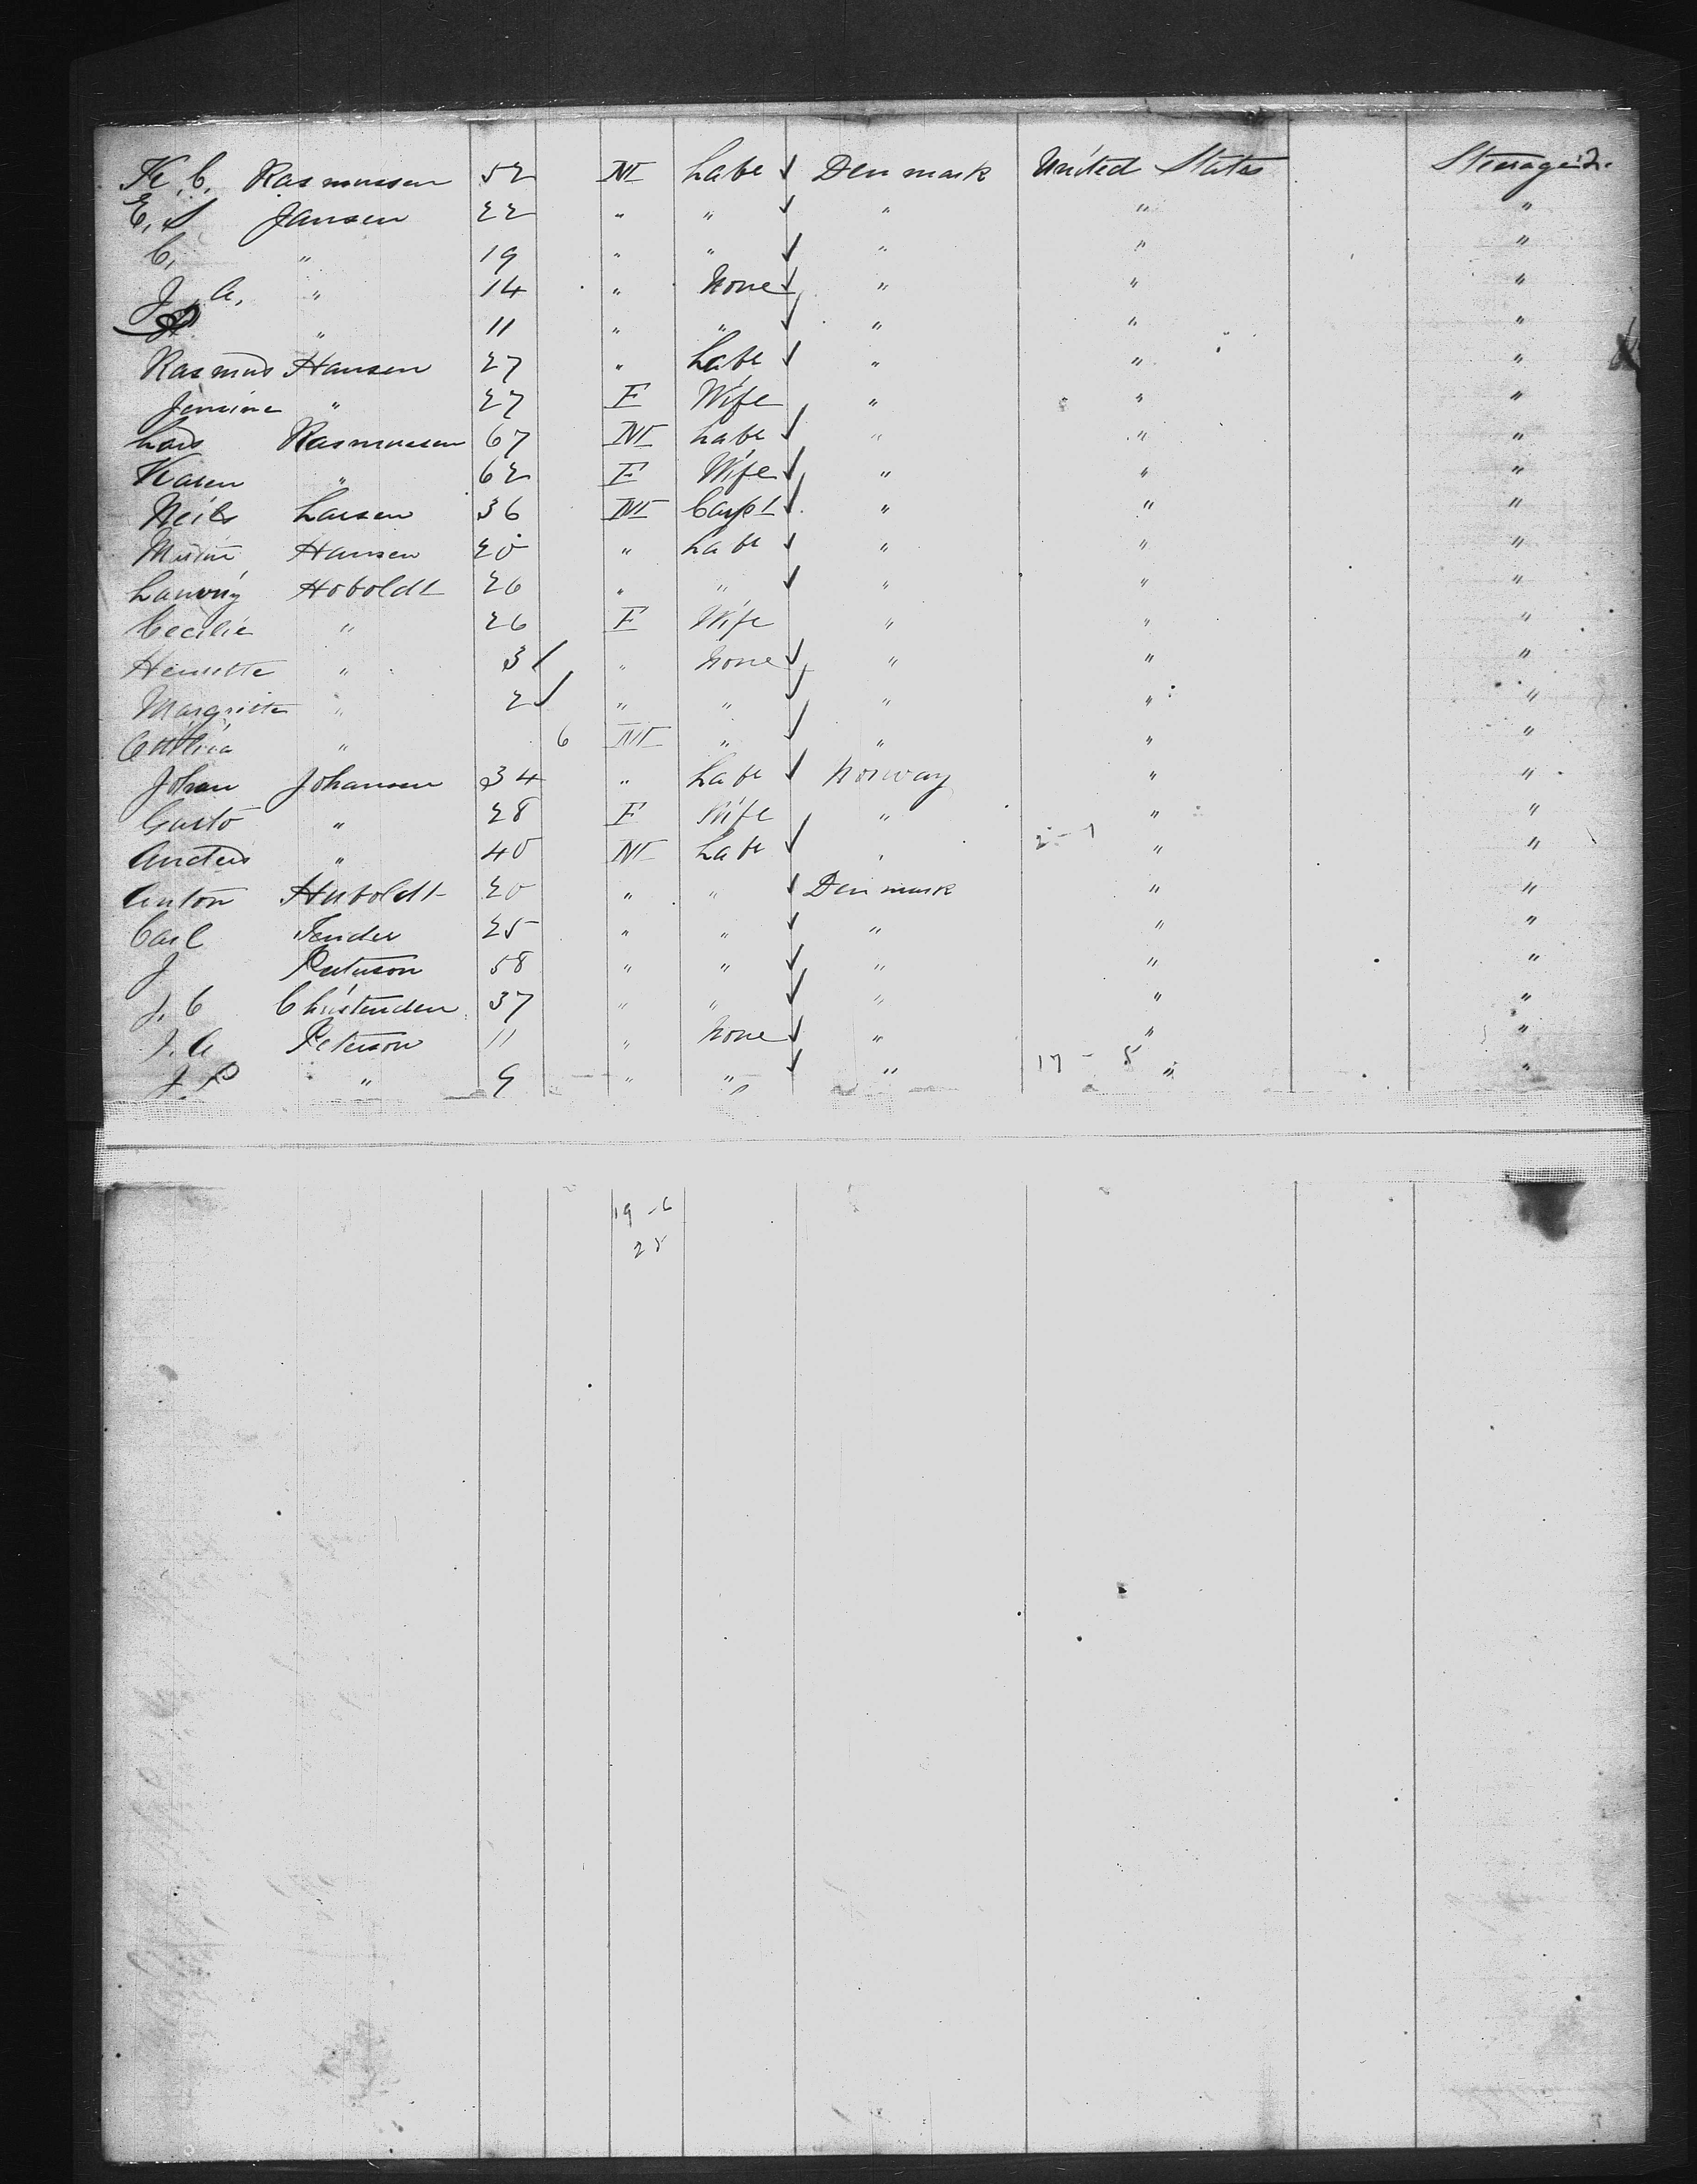 K. C. Rasmussen 52 M Labr ✓ Denmark United States Steerage 2.
E. S Jansen 22 " " ✓ " " "
C. " 19 " " ✓ " " "
J. C. " 14 " None ✓ " " "
P " 11 " " ✓ " " "
Rasmus Hansen 27 " Labr ✓ " " "
Jensine " 27 F Wife " " "
Lars Rasmussen 67 M Labr ✓ " " "
Karen " 62 F Wife ✓ " " "
Neils Larsen 36 M Carpt ✓ " " "
Hansen 20 " Labr ✓ " " "
Hoboldt 26 " " ✓ " " "
Cecilie " 26 F Wife " " "
Henriette " 3 ✓ " None ✓ " " "
Margrette " 2 ✓ " " ✓ " " "
" 6 M " ✓ " " "
Johan Johansen 34 " Labr ✓ Norway " "
" 28 F Wife " " "
Anders " 40 M Labr ✓ " "
Anton Huboldt 20 " " ✓ Denmark " "
Carl 25 " " ✓ " " "
J Peterson 58 " " ✓ " " "
J. C Christenden 37 " " ✓ " " "
J. A Peterson 11 " None ✓ " " "
J. P " 9 " " ✓ " 17 - 5 " "
19 - 6